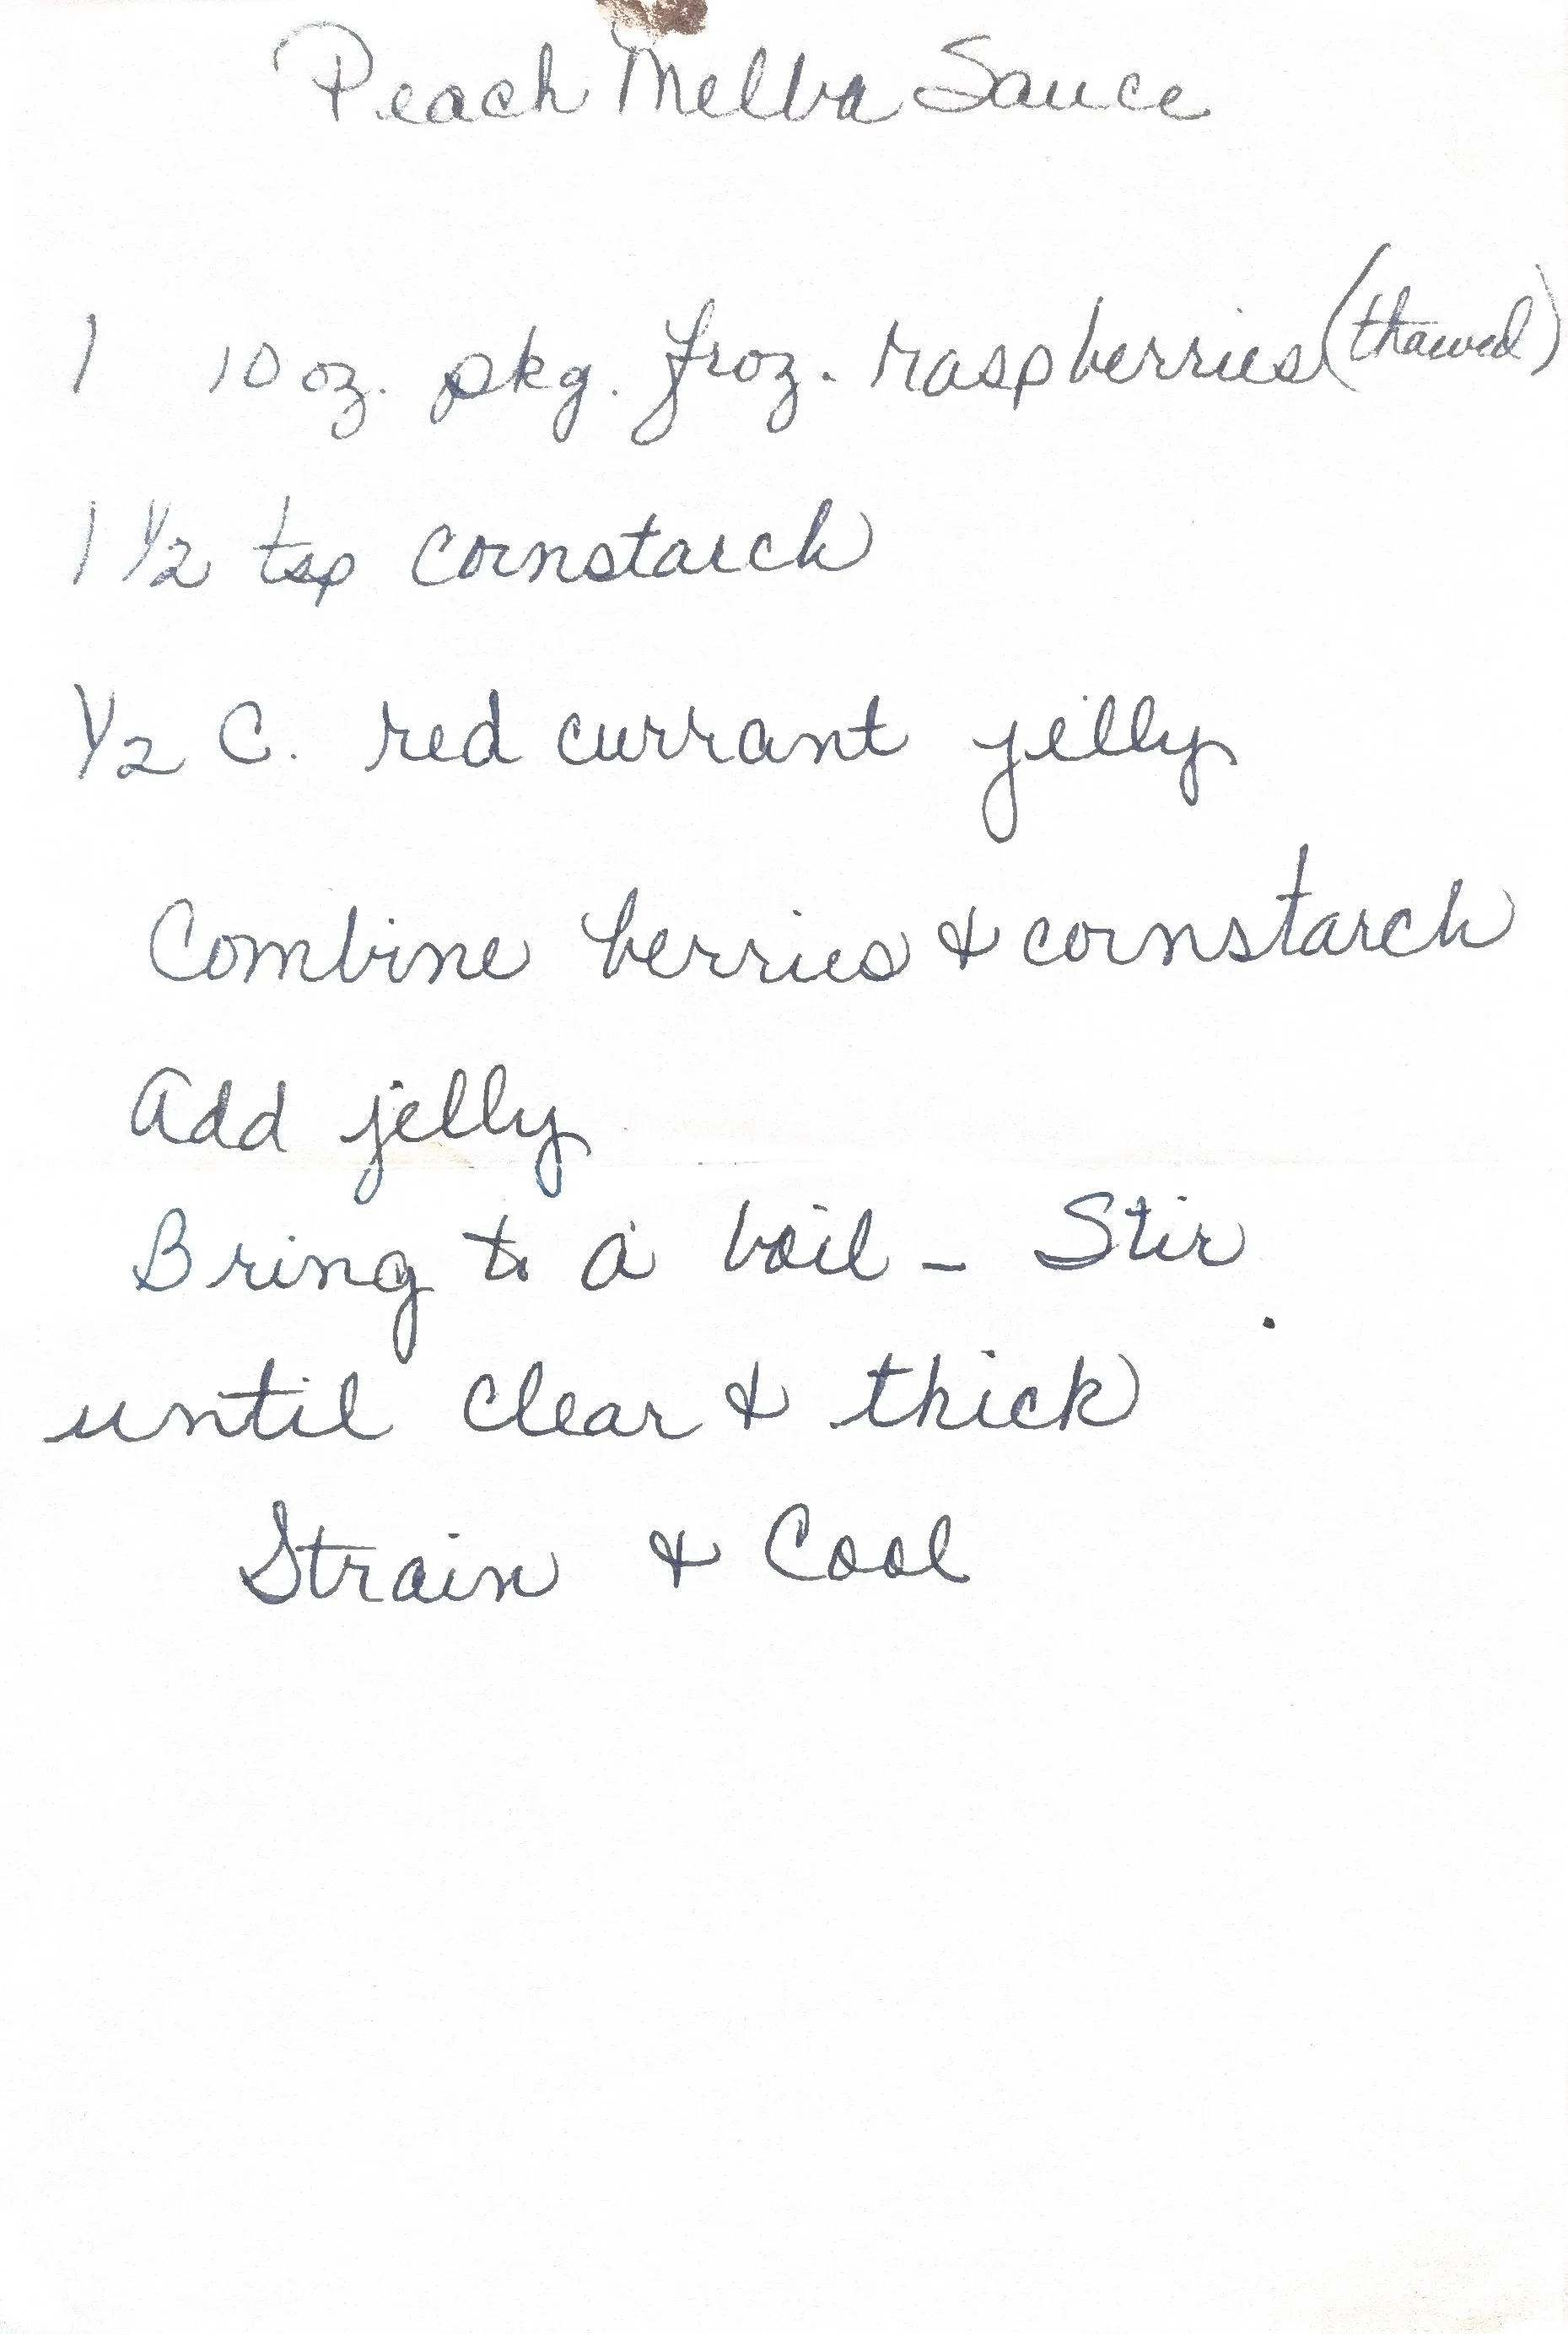 Peach Melba Sauce
1 10 oz. pkg. froz. raspberries (thawed)
1 1/2 tsp cornstarch
1/2 C. red currant jelly
Combine berries & cornstarch
Add jelly
Bring to a boil - Stir
until clear & thick
Strain & Cool